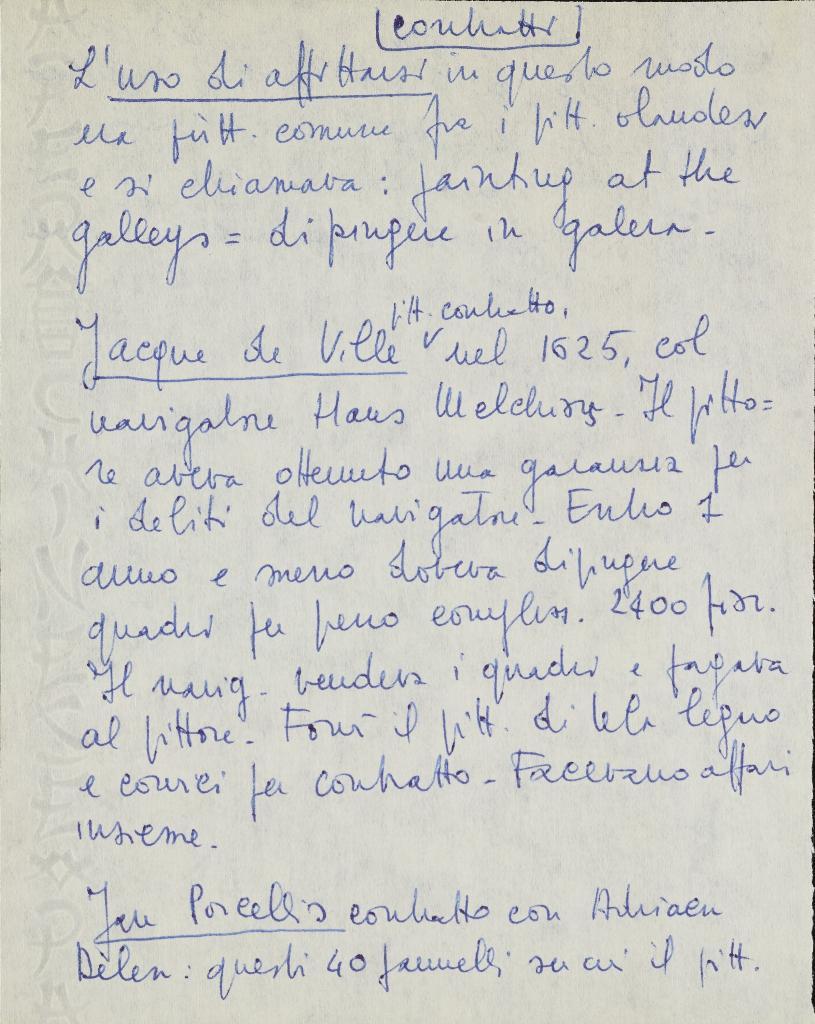 contratti
L'uso di affittarsi in questo modo
era piutt. comune fra i pitt. olandesi
e si chiamava: painting at the
galleys = dipingere in galera -
pitt. contratto,
Jacque de Ville nel 1625, col
navigatore Hans Melchiors - Il pitto=
re aveva ottenuto una garanzia per
i debiti del navigatore - Entro 1
anno e mezzo doveva dipingere
quadri per prezzo compless. 2400 fior.
Il navig. vendeva i quadri e pagava
al pittore - Fornì il pitt. di tela legno
e cornici per contratto - Facevano affari
insieme.
Jan Porcellis contratto con Adriaen
Delen: questi 40 pannelli su cui il pitt.